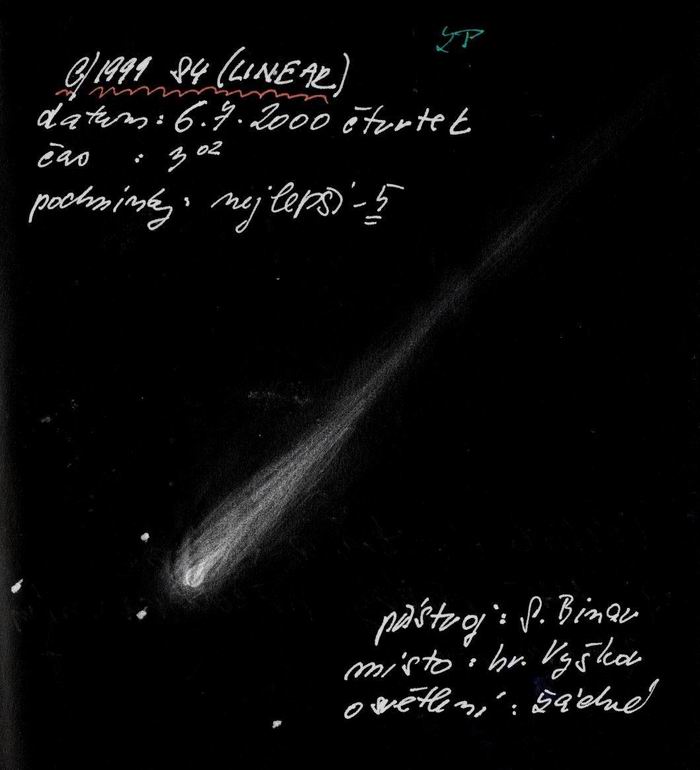 C/1999 S4 (LINEAR)
dátum: 6.7.2000 čtvrtek
čas : 3⁰²
podmínky: nejlepší - 5
přístroj: S. Binar
místo: hv. Vyškov
osvětlení: žádné